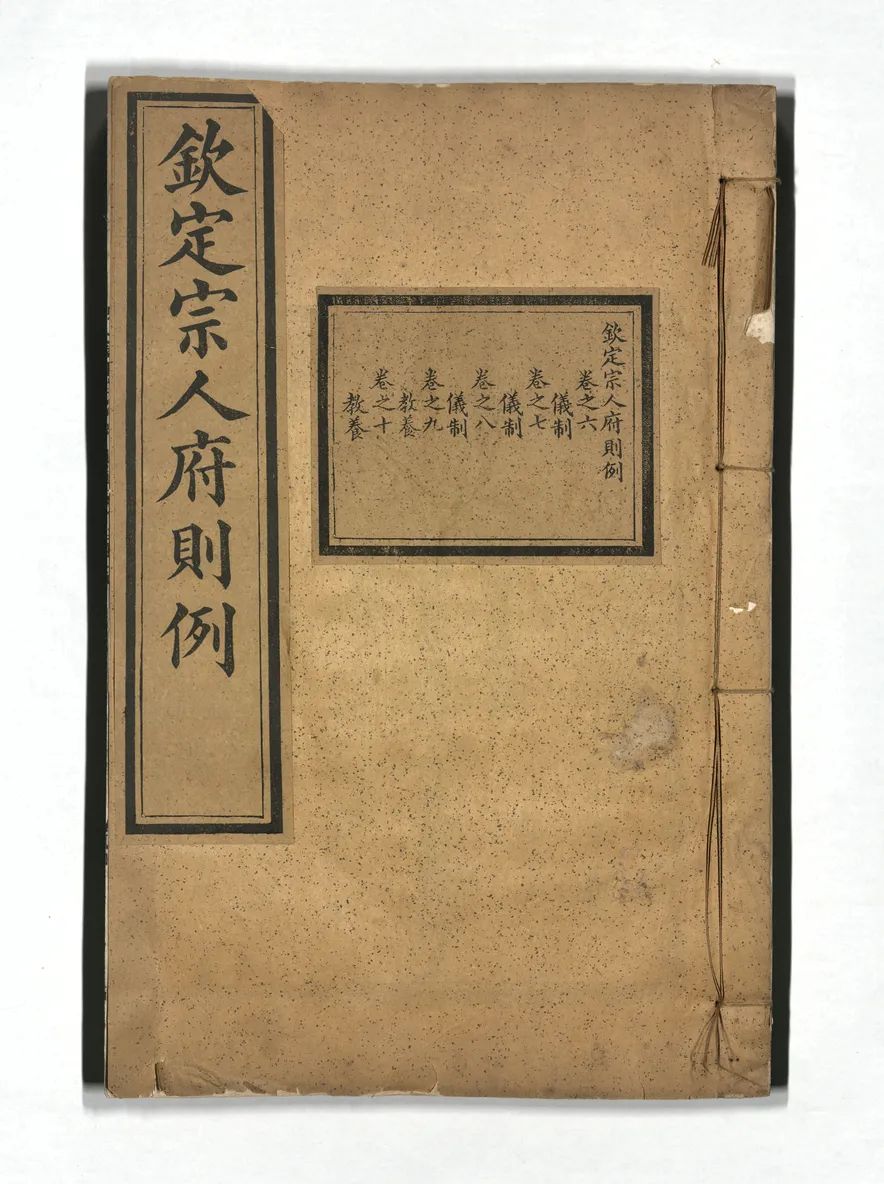 欽定宗人府則例
欽定宗人府則例
卷之六
儀制
卷之七
儀制
卷之八
儀制
卷之九
教養
卷之十
教養